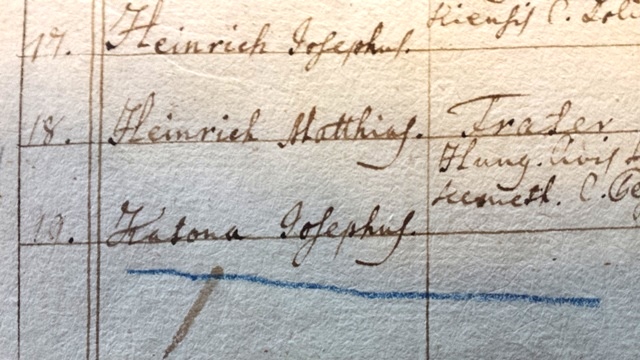 17. Heinrich Josephus.
kiensis C.
18. Heinrich Matthias. Frater
Hung. Civis
kemeth. C.
19. Katona Josephus.